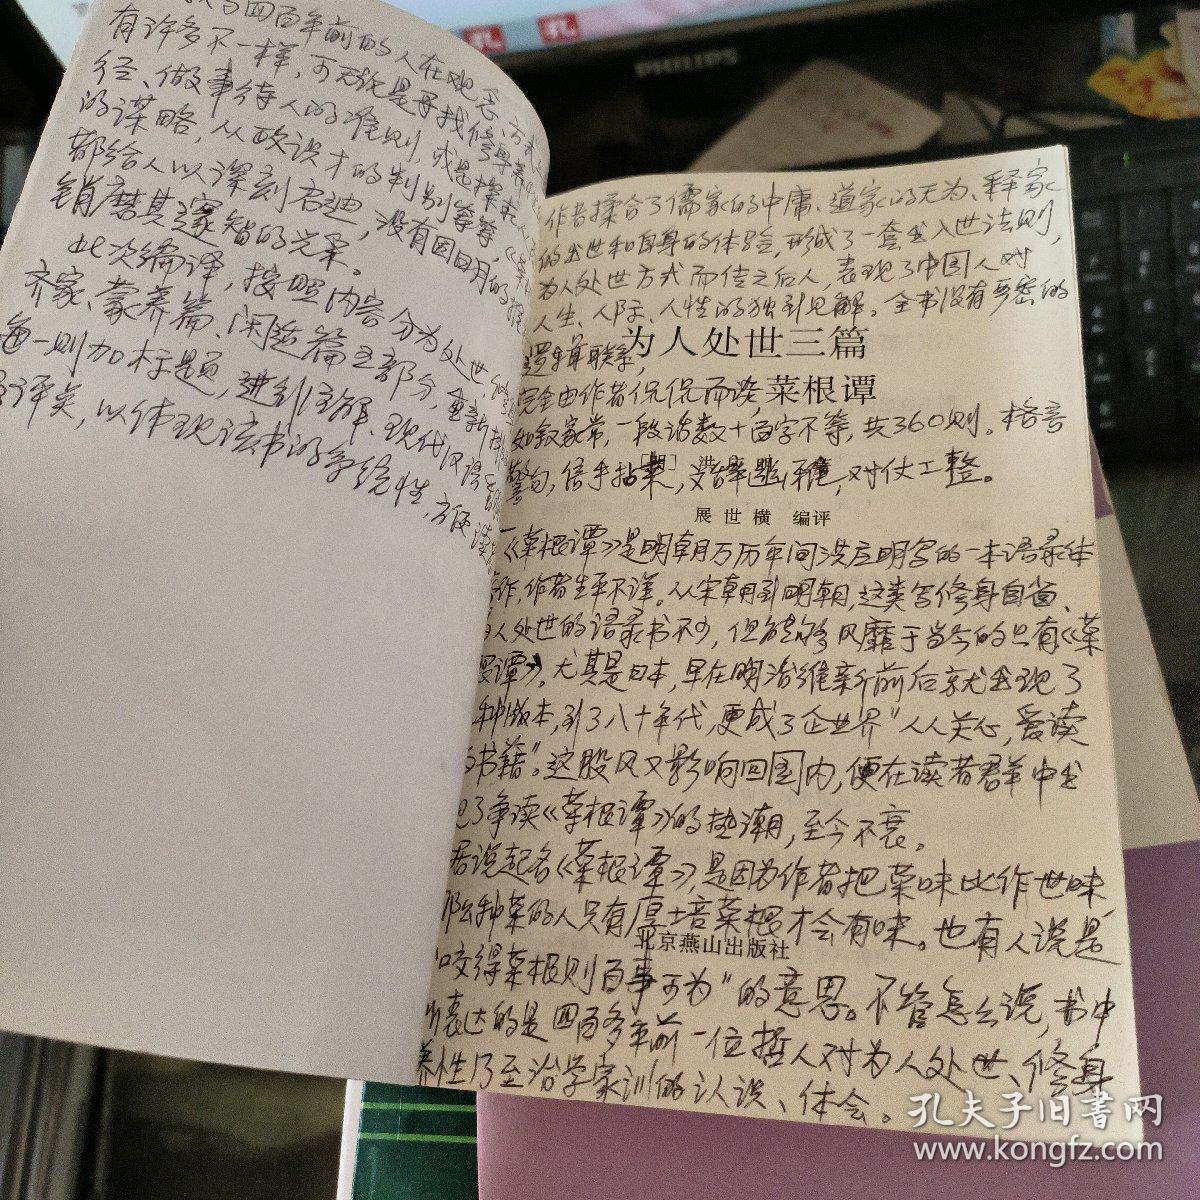 四百年前的人在观念、方
有许多不一样，可无论是寻找修身养
径、做事待人的准则，或是探求
的谋略，从政识才的判别等等，《菜
都给人以深刻启迪，没有因日月的推
销磨其邃智的光采。
此次编译，按照内容分为处世、修身
齐家、蒙养篇、闲适篇五部分，重新
每一则加标题，进行注解、现代汉语
评类，以体现该书的系统性，方便读
作者揉合了儒家的中庸、道家的无为、释家
的出世和自身的体验，形成了一套出入世法则，
为人处世方式而传之后人，表现了中国人对
人生、人际、人性的独到见解。全书没有严密的
为人处世三篇
逻辑联系，
完全由作者侃侃而谈，
菜根谭
如叙家常，一段话数十百字不等，共360则。格言
警句，信手拈来，文辞幽雅，对仗工整。
展世横 编评
《菜根谭》是明朝万历年间洪应明写的一本语录体
作，作者生平不详。从宋朝到明朝，这类写修身自省、
人处世的语录书不少，但能够风靡于当今的只有《菜
根谭》。尤其是日本，早在明治维新前后就出现了
种版本，到了八十年代，更成了企业界"人人关心，爱读
书籍"。这股风又影响回国内，便在读者群中出
现了争读《菜根谭》的热潮，至今不衰。
据说起名《菜根谭》，是因为作者把菜味比作世味，
那么种菜的人只有厚培菜根才会有味。也有人说是
北京燕山出版社
"咬得菜根则百事可为"的意思。不管怎么说，书中
所表达的是四百多年前一位哲人对为人处世、修身
养性乃至治学家训的认识、体会。
PHILIPS
孔夫子旧书网
www.kongfz.com